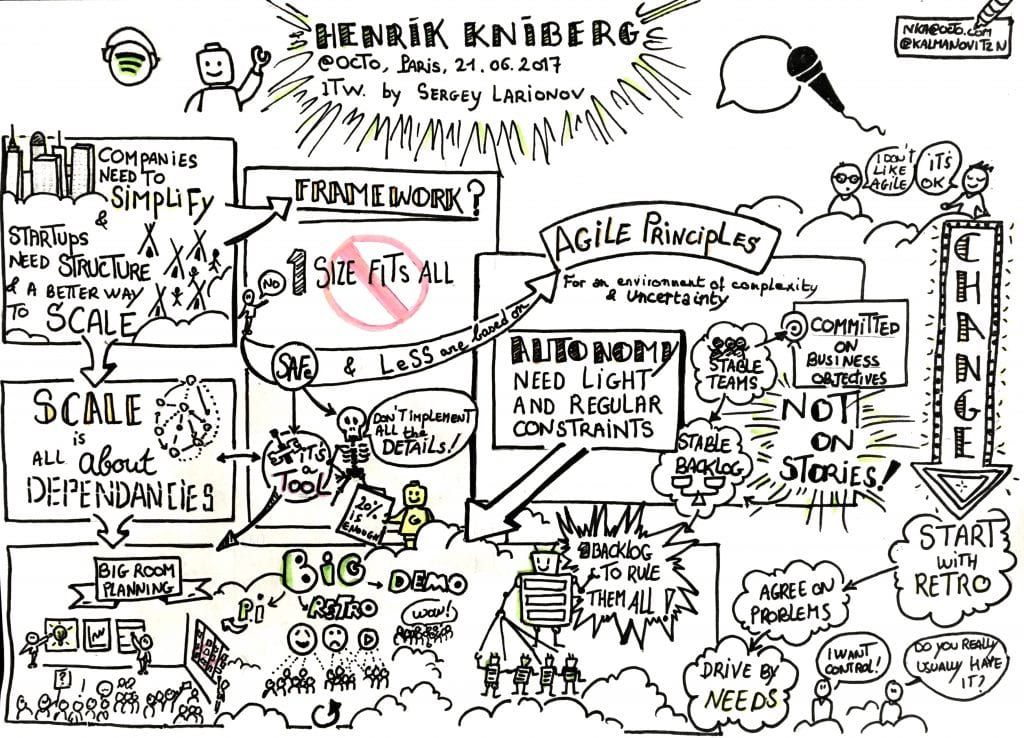 HENRIK KNIBERG
@OCTO, PARIS, 21.06.2017
ITW. by SERGEY LARIONOV
NKA@OCTO.COM
@KALMANOVITZN
COMPANIES
NEED TO
SIMPLIFY
&
STARTUPS
NEED STRUCTURE
& A BETTER WAY
TO SCALE
FRAMEWORK?
1 SIZE FITS ALL
NO
SAFe
& LeSS are based on
AGILE PRINCIPLES
For an environment of complexity
& UNCERTAINTY
AUTONOMY
NEED LIGHT
AND REGULAR
CONSTRAINTS
STABLE
TEAMS
COMMITTED
ON
BUSINESS
OBJECTIVES
NOT
ON
STORIES!
STABLE
BACKLOG
I DON'T
LIKE
AGILE
IT'S
OK
CHANGE
START
WITH
RETRO
AGREE ON
PROBLEMS
DRIVE BY
NEEDS
I WANT
CONTROL!
DO YOU REALLY
USUALLY HAVE
IT?
SCALE
is
ALL about
DEPENDANCIES
IT'S
A
TOOL
DON'T IMPLEMENT
ALL the
DETAILS!
20%
IS
ENOUGH
BIG ROOM
PLANNING
?
BIG
P.i
RETRO
DEMO
WOW!
BACKLOG
TO RULE
THEM ALL!